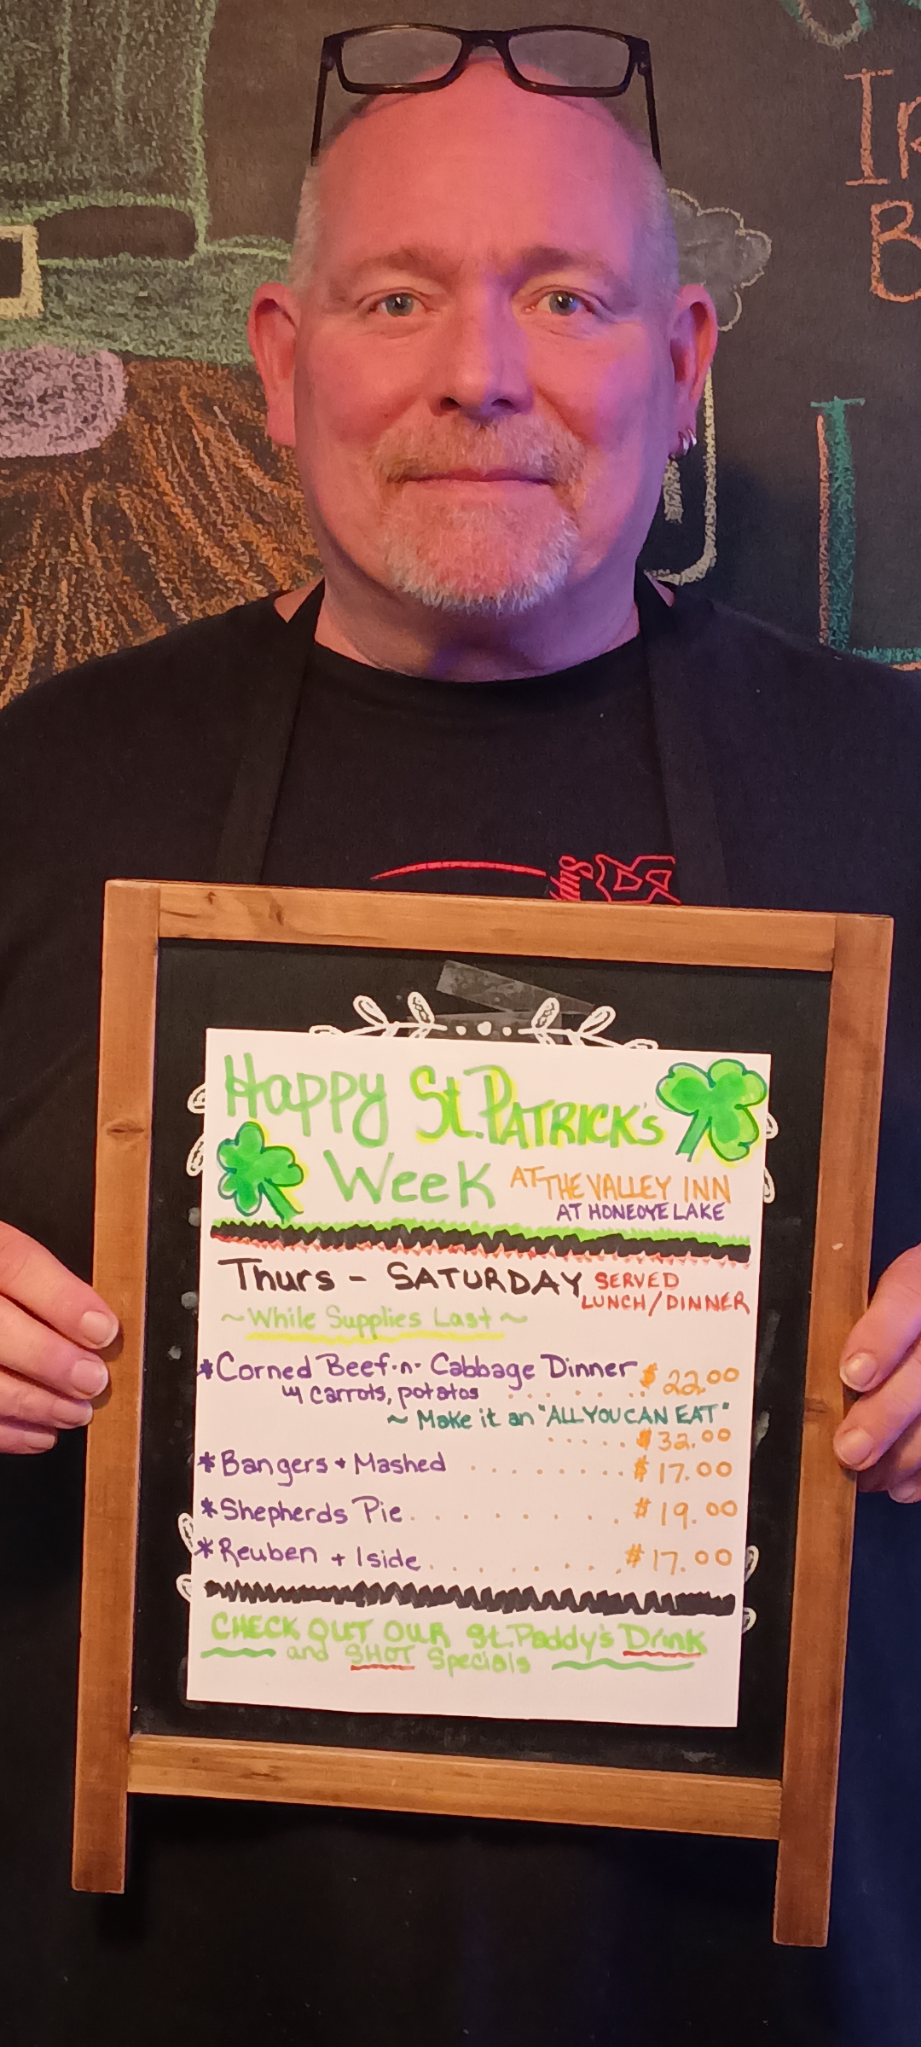 Ir
B
Happy St. PATRICK's
Week AT THE VALLEY INN
AT HONEOYE LAKE
Thurs - SATURDAY SERVED
LUNCH/DINNER
~While Supplies Last~
*Corned Beef-n-Cabbage Dinner $22.00
w/ carrots, potatos ........
~ Make it an "ALL YOU CAN EAT"
..... $32.00
*Bangers + Mashed ........ $17.00
*Shepherds Pie......... $19.00
*Reuben + 1side......... $17.00
CHECK OUT OUR St. Paddy's Drink
and SHOT Specials